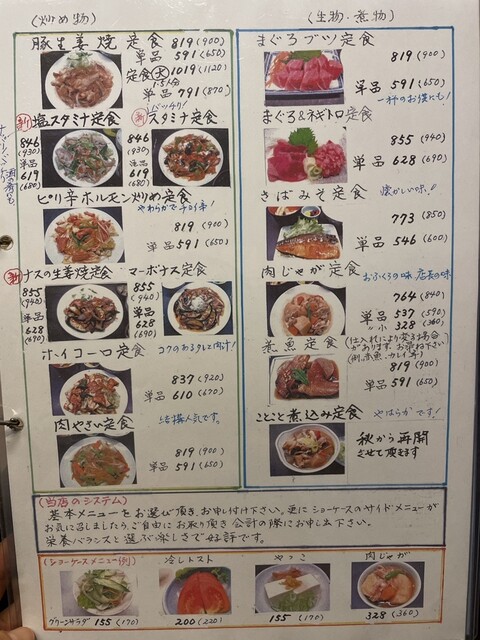 (炒め物)
豚生姜焼定食 819(900)
単品 591(650)
定食(大) 1019(1120)
1.5人分
単品 791(870)
バッチリ!
新 塩スタミナ定食
846
(930)
単品
619
(680)
新 スタミナ定食
846
(930)
単品
619
(680)
ピリ辛ホルモン炒め定食
やわらかで
819(900)
単品 591(650)
新 ナスの生姜焼定食
855
(940)
単品
628
(690)
マーボナス定食
855
(940)
単品
628
(690)
ホイコーロ定食
コクのあるタレと肉汁!
837(920)
単品 610(670)
結構人気です。
肉やさい定食
819(900)
単品 591(650)
(生物・煮物)
まぐろブツ定食
819(900)
単品 591(650)
一杯のお供にも!
まぐろ&ネギトロ定食
855(940)
単品 628(690)
さばみそ定食
懐かしい味!!
773(850)
単品 546(600)
肉じゃが定食
おふくろの味 店長の味
764(840)
単品 537(590)
〃小 328(360)
煮魚定食
(仕入れにより変る場合
があります。お尋ね下さい
(例.赤魚、カレイ等)
819(900)
単品 591(650)
ことこと煮込み定食
やはらかです!
秋から再開
させて頂きます
(当店のシステム)
基本メニューをお選び頂き、お申し付け下さい。更にショーケースのサイドメニューが
お気に召しましたら、ご自由にお取り頂き会計の際にお申し出下さい。
栄養バランスと選ぶ楽しさで好評です。
(ショーケースメニューの例)
グリーンサラダ 155(170)
冷しトスト
200(220)
やっこ
155(170)
肉じゃが
328(360)